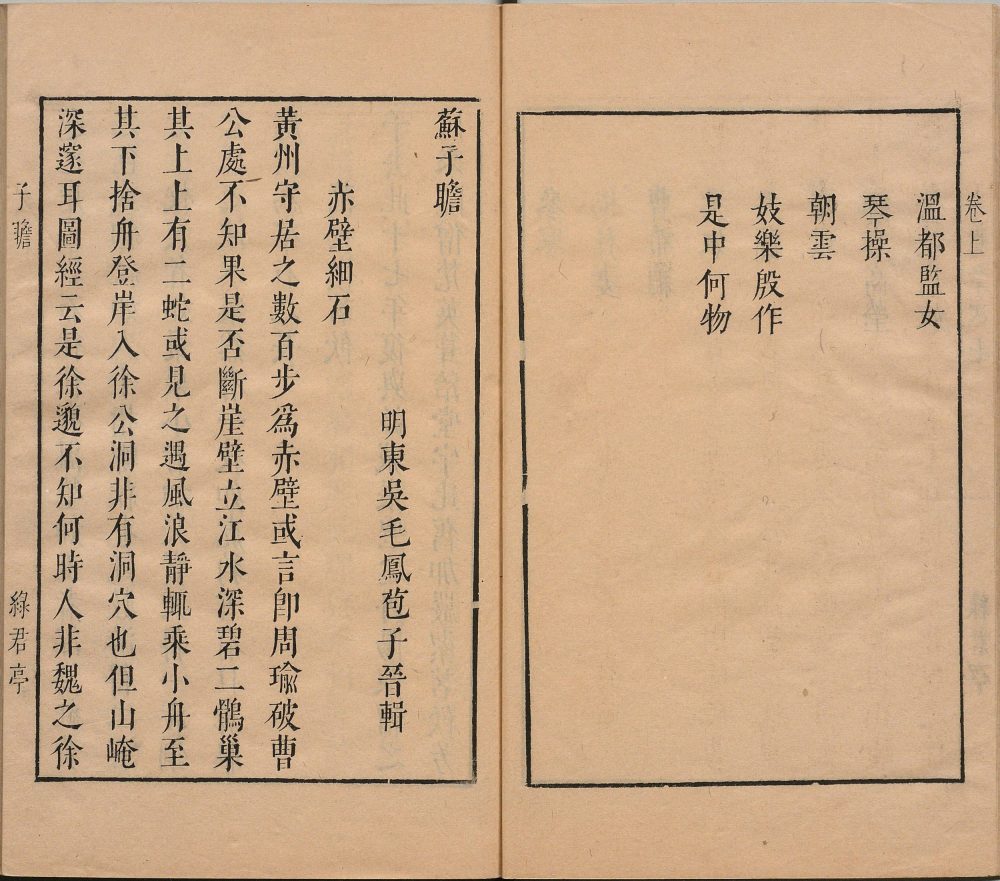 卷上
溫都監女
琴操
朝雲
妓樂殷作
是中何物
蘇子瞻
明東吳毛鳳苞子晉輯
赤壁細石
黃州守居之數百步爲赤壁或言卽周瑜破曹
公處不知果是否斷崖壁立江水深碧二鶻巢
其上上有二蛇或見之遇風浪靜輒乘小舟至
其下捨舟登岸入徐公洞非有洞穴也但山崦
深邃耳圖經云是徐邈不知何時人非魏之徐
子瞻
綠君亭